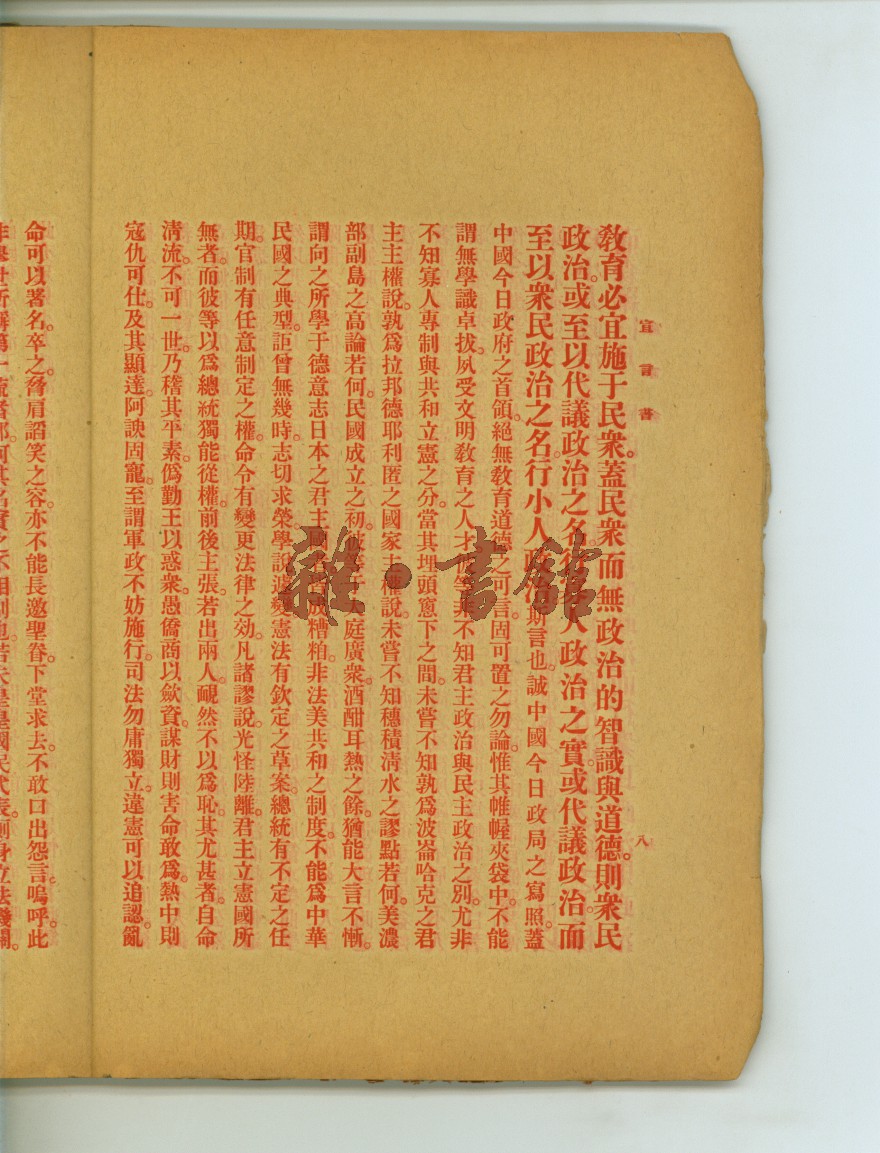 宣言書
八
教育必宜施于民衆。蓋民衆而無政治的智識與道德。則衆民
政治。或至以代議政治之名。行人政治之實。或代議政治。而
至以衆民政治之名。行小人政斯言也。誠中國今日政局之寫照。蓋
中國今日政府之首領。絕無教育道德之可言。固可置之勿論。惟其帷幄夾袋中。不能
謂無學識卓拔。夙受文明教育之人才。非不知君主政治與民主政治之別。尤非
不知寡人專制與共和立憲之分。當其埋頭窻下之間。未嘗不知孰爲波崙哈克之君
主主權說。孰爲拉邦德耶利匿之國家主權說。未嘗不知穗積淸水之謬點若何。美濃
部副島之高論若何。民國成立之初。庭廣衆。酒酣耳熱之餘。猶能大言不慚。
謂向之所學于德意志日本之君主國糟粕。非法美共和之制度。不能爲中華
民國之典型。詎曾無幾時。志切求榮。學說遽變。憲法有欽定之草案。總統有不定之任
期。官制有任意制定之權。命令有變更法律之効。凡諸謬說。光怪陸離。君主立憲國所
無者。而彼等以爲總統獨能從權。前後主張。若出兩人。靦然不以爲恥。其尤甚者。自命
淸流。不可一世。乃稽其平素。僞勤王以惑衆。愚僑商以歛資。謀財則害命敢爲。熱中則
寇仇可仕。及其顯達。阿諛固寵。至謂軍政不妨施行。司法勿庸獨立。違憲可以追認。亂
命可以署名。卒之。脅肩謟笑之容。亦不能長邀聖眷。下堂求去。不敢口出怨言。嗚呼。此
雜·書館